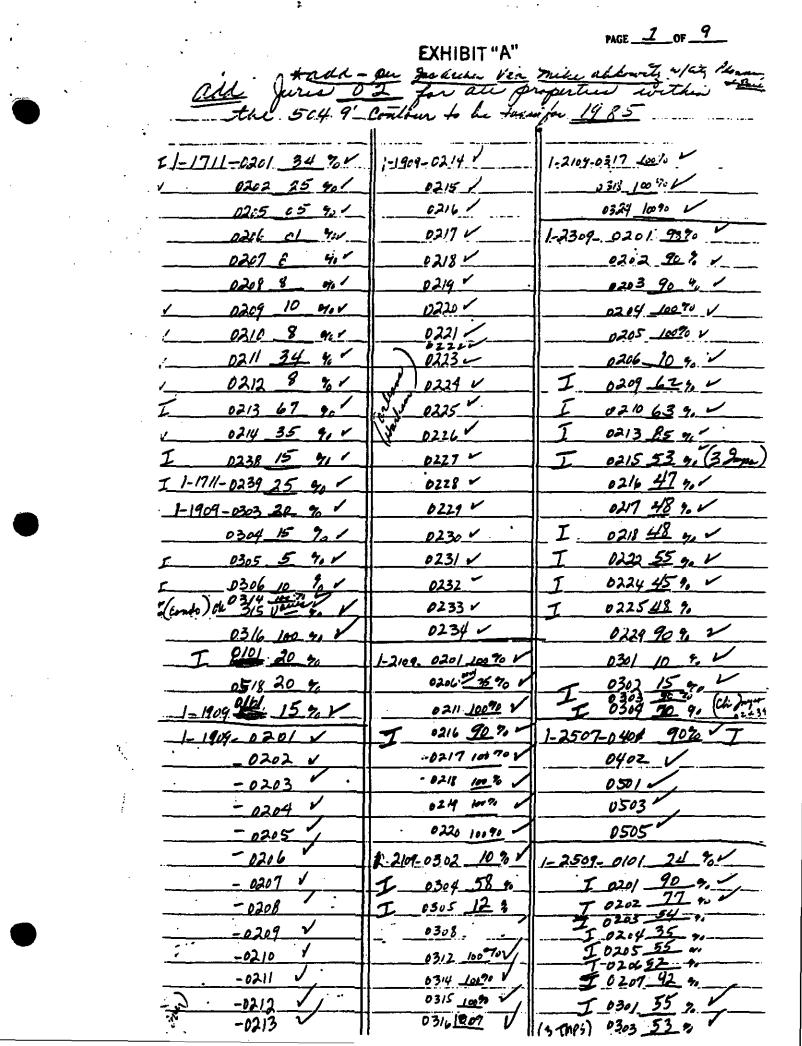 PAGE 1 OF 9
EXHIBIT "A"
*add - per Mike w/city
add Juris 02 for all properties within
the 504.9' Contour to be for 1985
I 1-1711-0201 34 % ✓
✓ 0202 25 % ✓
0205 05 % ✓
0206 01 % ✓
0207 8 % ✓
0208 8 % ✓
✓ 0209 10 % ✓
✓ 0210 8 % ✓
0211 34 % ✓
✓ 0212 8 % ✓
I 0213 67 % ✓
✓ 0214 35 % ✓
I 0238 15 % ✓
I 1-1711-0239 25 % ✓
1-1909-0303 20 % ✓
0304 15 % ✓
I 0305 5 % ✓
I 0306 10 % ✓
(Condo) 0314 100 % ✓
315 ✓
0316 100 % ✓
I 0101 20 %
0518 20 %
1-1909 15 % ✓
1-1909-0201 ✓
-0202 ✓
-0203 ✓
-0204 ✓
-0205 ✓
-0206 ✓
-0207 ✓
-0208 ✓
-0209 ✓
-0210 ✓
-0211 ✓
-0212 ✓
-0213 ✓
1-1909-0214 ✓
0215 ✓
0216 ✓
0217 ✓
0218 ✓
0219 ✓
0220 ✓
0221 ✓
0222 ✓
0223 ✓
0224 ✓
0225 ✓
0226 ✓
0227 ✓
0228 ✓
0229 ✓
0230 ✓
0231 ✓
0232 ✓
0233 ✓
0234 ✓
1-2109-0201 100% ✓
0206 35 % ✓
0211 100% ✓
I 0216 90 % ✓
-0217 100 % ✓
-0218 100 % ✓
0219 100% ✓
0220 100% ✓
1-2109-0302 10 % ✓
I 0304 58 %
I 0305 12 %
0308
0312 100 % ✓
0314 100% ✓
0315 100% ✓
0316 ✓
1-2109-0317 100% ✓
0318 100 % ✓
0324 100% ✓
1-2309-0201 93% ✓
0202 90 % ✓
0203 90 % ✓
0204 100% ✓
0205 100% ✓
0206 10 % ✓
I 0209 62 % ✓
I 0210 63 % ✓
I 0213 85 % ✓
I 0215 53 % (3 Imps)
0216 47 % ✓
0217 48 % ✓
I 0218 48 % ✓
I 0222 55 % ✓
I 0224 45 % ✓
I 0225 48 %
0229 90 % ✓
0301 10 % ✓
0302 15 % ✓
I 0303 90 %
I 0304 90 %
1-2507-0401 90% ✓ I
0402 ✓
0501 ✓
0503 ✓
0505
1-2509-0101 24 % ✓
I 0201 90 % ✓
I 0202 77 % ✓
I 0203 54 %
I 0204 35 %
I 0205 55 %
I 0206 52 %
I 0207 92 %
I 0301 55 % ✓
(3 IMPS) 0303 53 % ✓